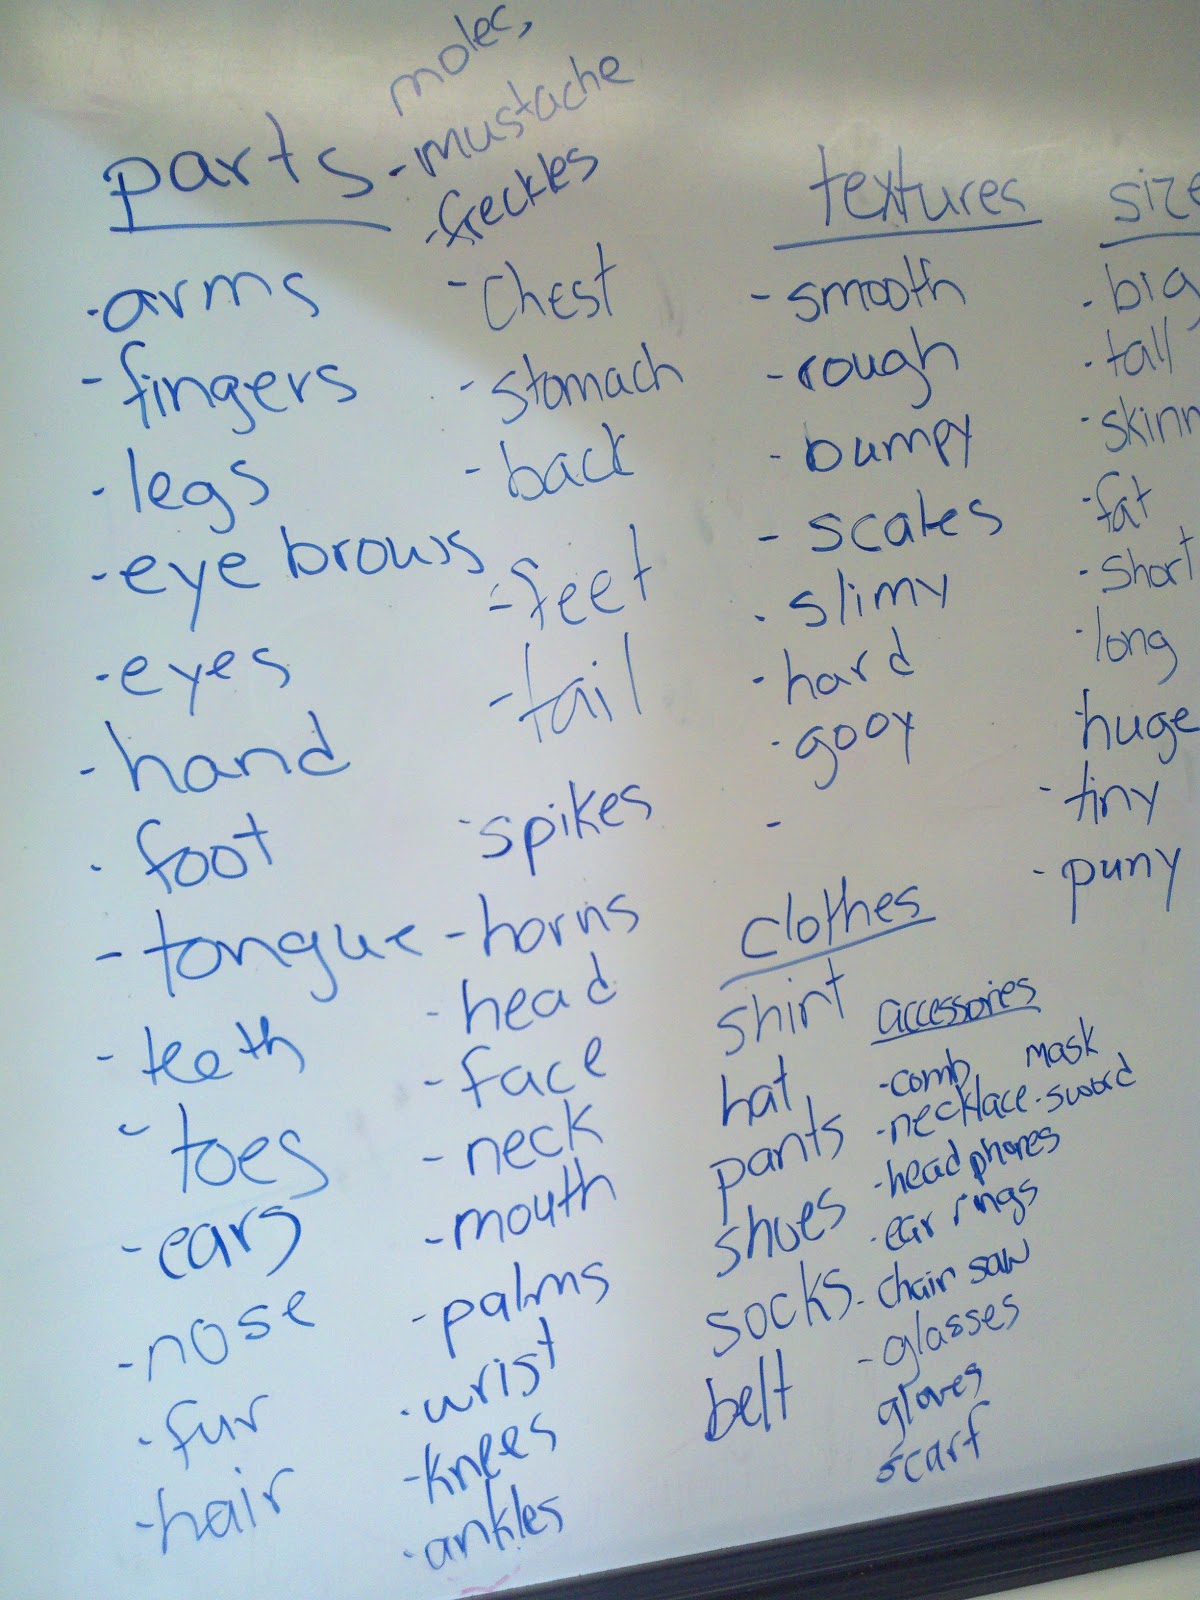 moles,
parts - mustache
- freckles
- arms
- fingers
- legs
- eye brows
- eyes
- hand
- foot
- tongue
- teeth
- toes
- ears
- nose
- fur
- hair
- chest
- stomach
- back
- feet
- tail
- spikes
- horns
- head
- face
- neck
- mouth
- palms
- wrist
- knees
- ankles
textures
- smooth
- rough
- bumpy
- scales
- slimy
- hard
- gooy
-
size
- big
- tall
- skinn
- fat
- short
- long
huge
- tiny
- puny
clothes
shirt
hat
pants
shoes
socks
belt
accessories
- comb mask
- necklace - sword
- headphones
- ear rings
- chair saw
- glasses
gloves
scarf